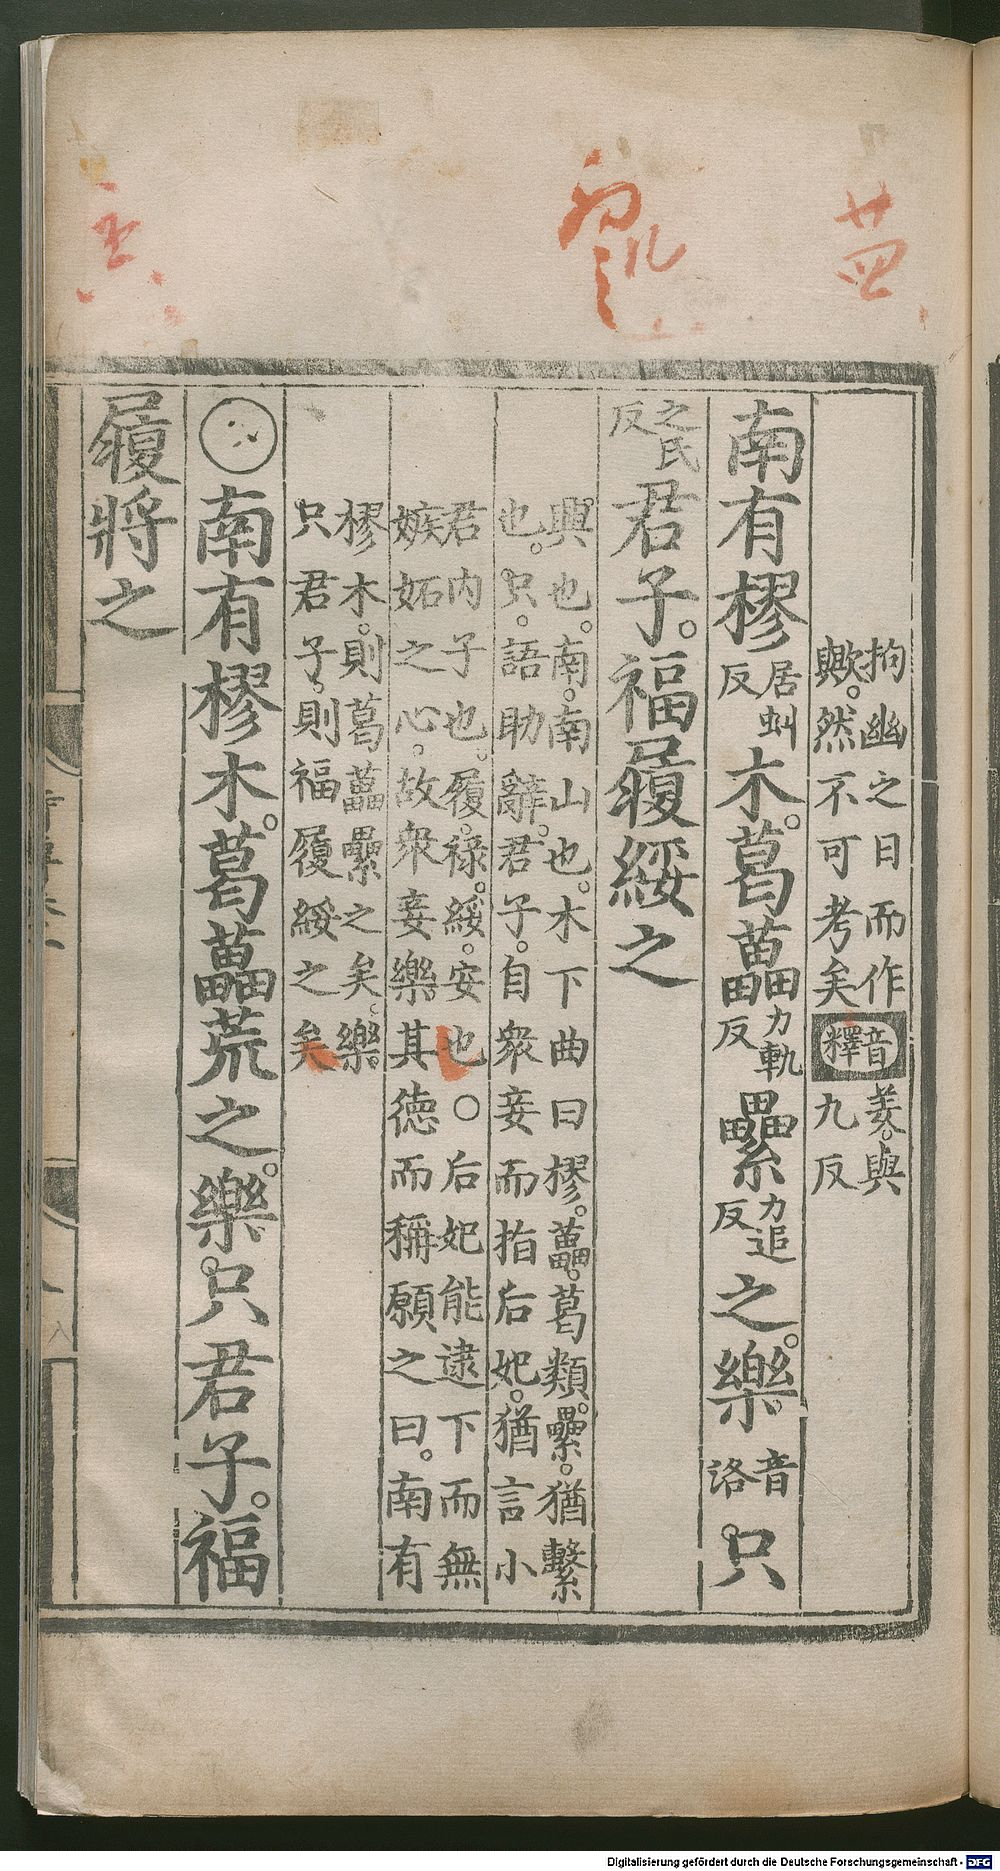 拘幽之日而作
歟。然不可考矣音釋羑。與
九反
南有樛居虯反木。葛藟力軌反纍力追反之。樂音洛只
之氏反君子。福履綏之
興也。南。南山也。木下曲曰樛。藟。葛類。纍。猶繫
也。只。語助辭。君子。自衆妾而指后妃。猶言小
君内子也。履。祿。綏。安也○后妃能逮下而無
嫉妬之心。故衆妾樂其德而稱願之曰。南有
樛木。則葛藟纍之矣。樂
只君子。則福履綏之矣
○南有樛木。葛藟荒之。樂只君子。福
履將之
Digitalisierung gefördert durch die Deutsche Forschungsgemeinschaft - DFG